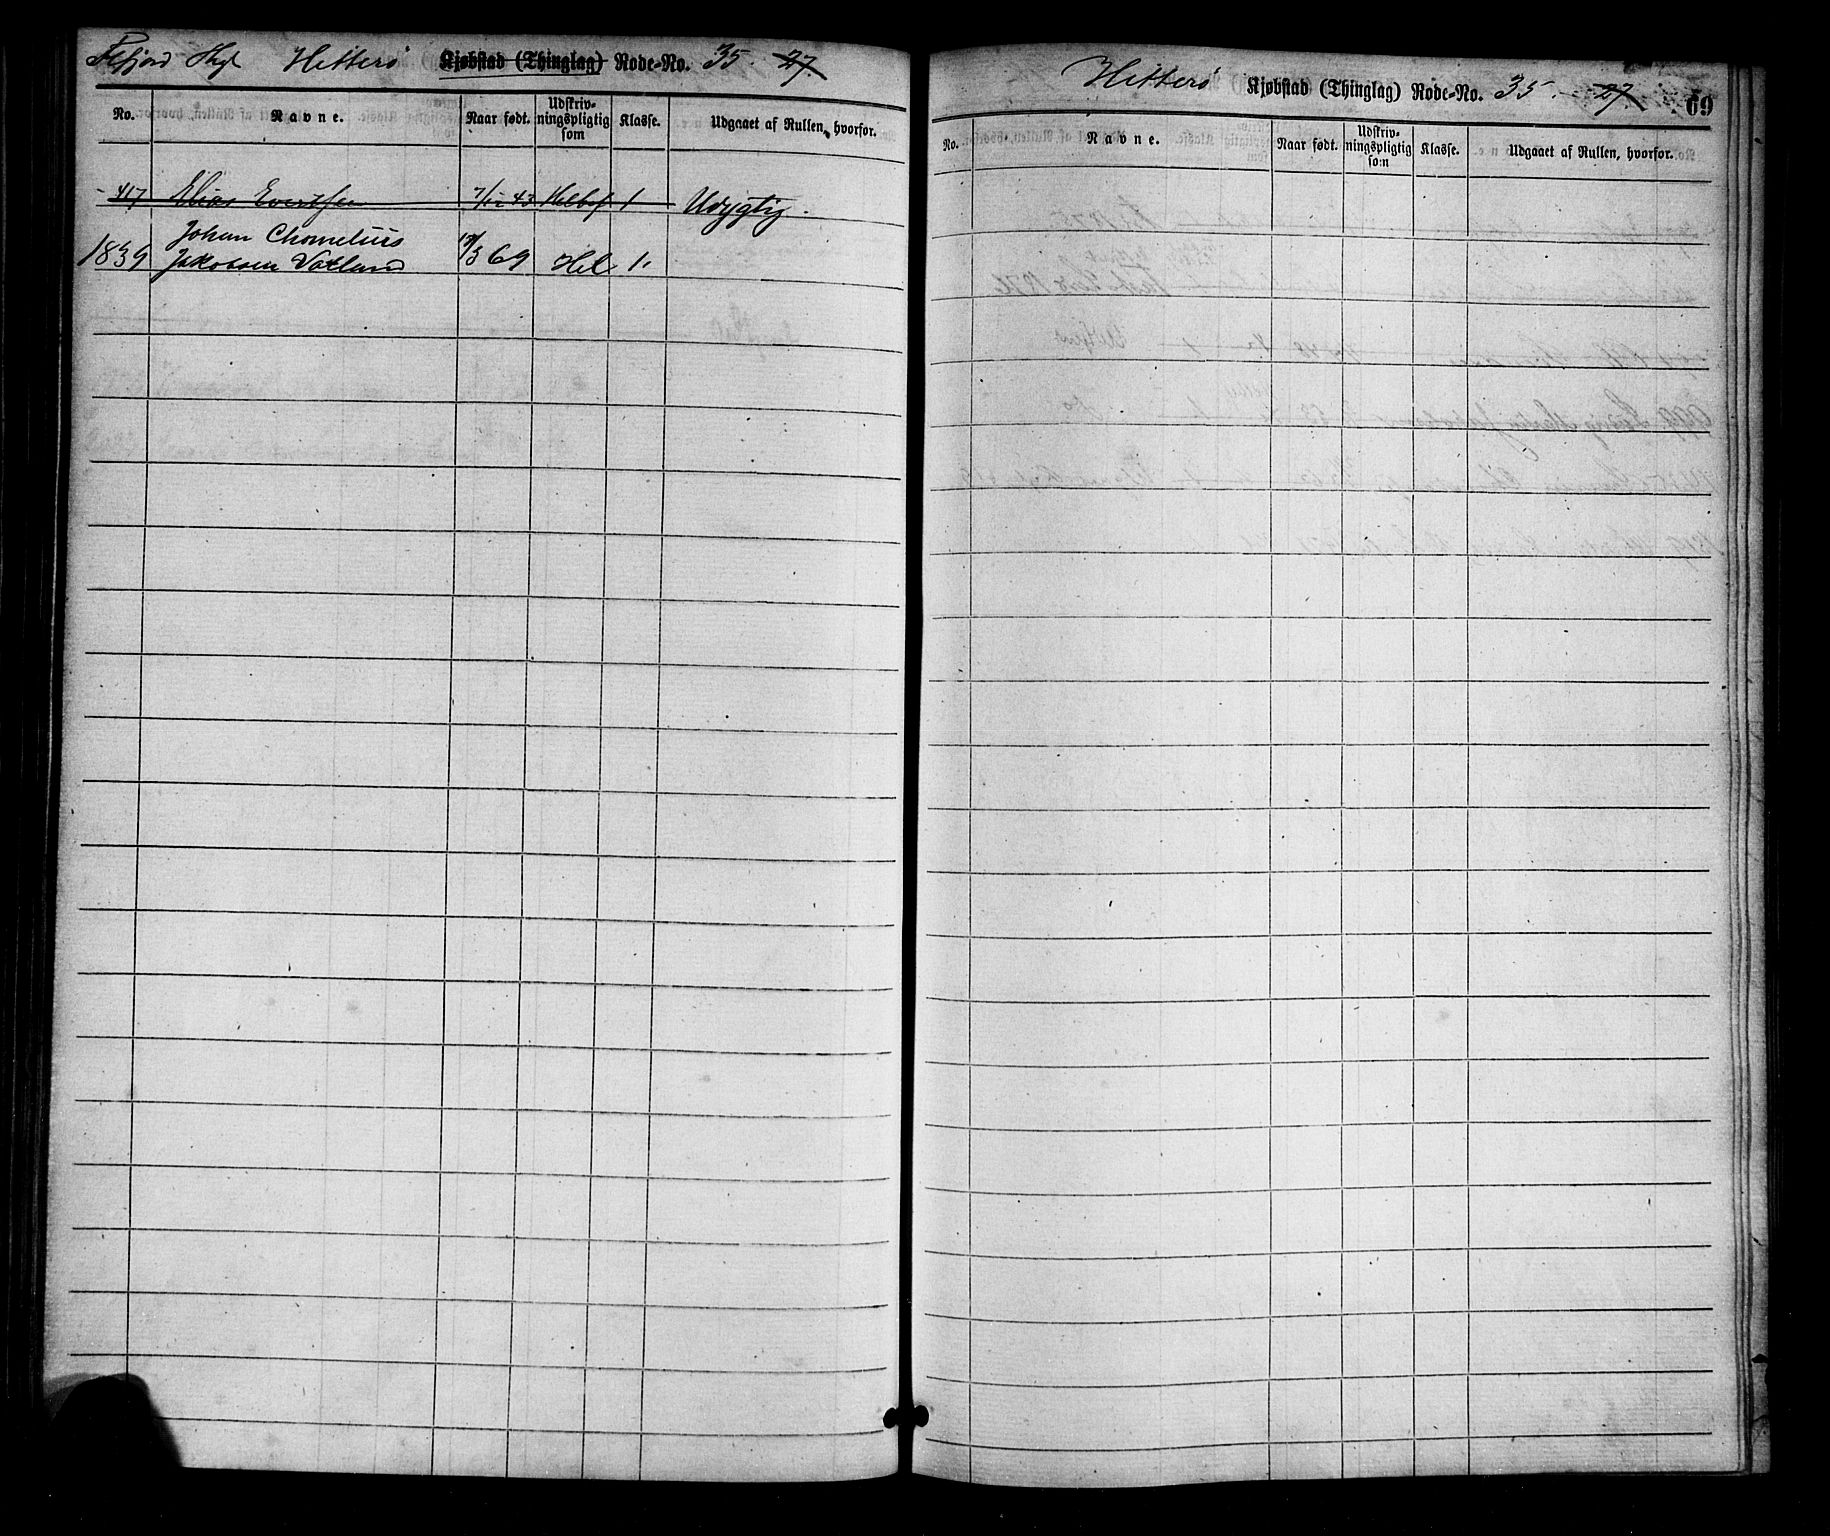 Hitterö Kjøbstad (Thinglag) Rode-No. 35. 27.
No. Navne. Naar født. Udskrivningspligtig som Klasse. Udgaaet af Rullen, hvorfor.
417 Elias Evertsen 43 1 Udygtig.
Johan Chornelius
1839 Jakobsen Vatland 69 Hel 1.
Hitterö Kjøbstad (Thinglag) Rode-No. 35. 27
69
No. Navne. Naar født. Udskrivningspligtig som Klasse. Udgaaet af Rullen, hvorfor.